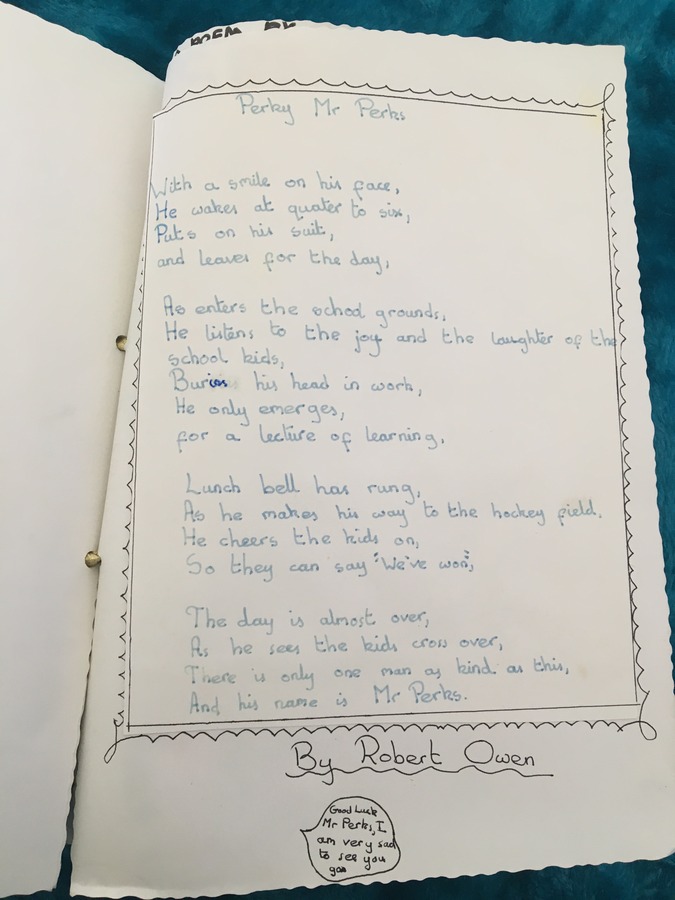 A POEM BY
Perky Mr Perks
With a smile on his face,
He wakes at quater to six,
Puts on his suit,
and leaves for the day,
As enters the school grounds,
He listens to the joy and the laughter of the
school kids,
Buries his head in work,
He only emerges,
for a lecture of learning,
Lunch bell has rung,
As he makes his way to the hockey field.
He cheers the kids on,
So they can say "We've won",
The day is almost over,
As he sees the kids cross over,
There is only one man as kind as this,
And his name is Mr Perks.
By Robert Owen
Good Luck
Mr Perks, I
am very sad
to see you
goo